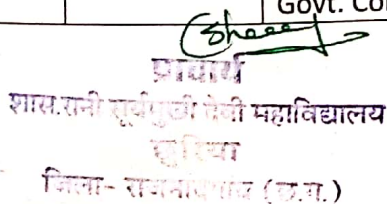 Govt. Co
प्राचार्य
शास. रानी सूर्यमुखी देवी महाविद्यालय
छुरिया
जिला- राजनांदगाव (छ.ग.)